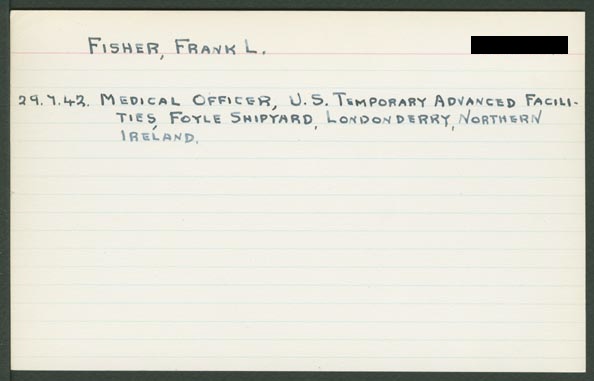 FISHER, FRANK L.
29.7.42. MEDICAL OFFICER, U.S. TEMPORARY ADVANCED FACILI-
TIES, FOYLE SHIPYARD, LONDONDERRY, NORTHERN
IRELAND.